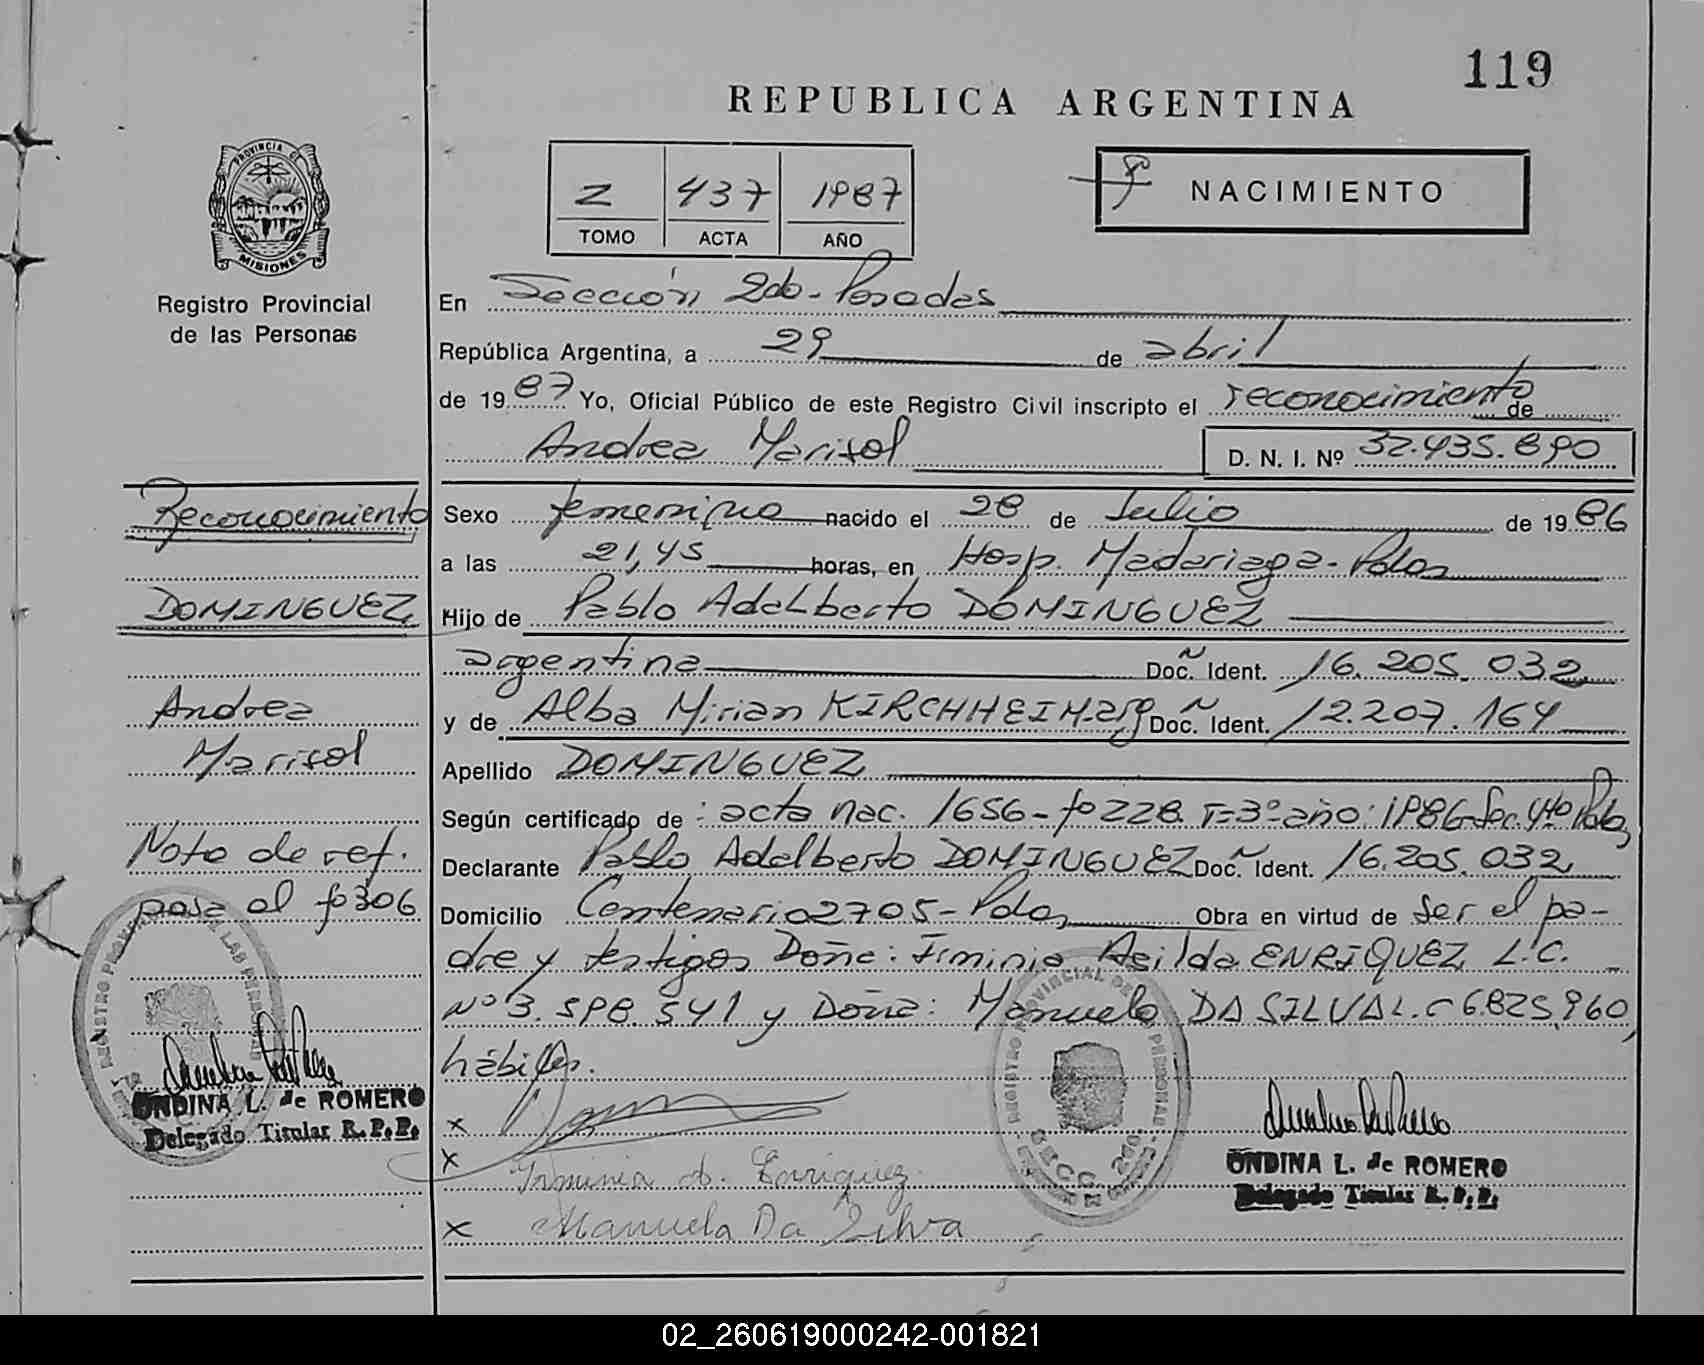 119
REPUBLICA ARGENTINA
PROVINCIA DE
MISIONES
Registro Provincial
de las Personas
2 437 1987
TOMO ACTA AÑO
NACIMIENTO
En Sección 2do- Posadas
República Argentina, a 29 de abril
de 1987 Yo, Oficial Público de este Registro Civil inscripto el reconocimiento de
Andrea Marisol D. N. I. Nº 32.435.890
Sexo femenino nacido el 28 de Julio de 1986
a las 21,45 horas, en Hosp. Madariaga- Pdas
Hijo de Pablo Adalberto DOMINGUEZ
argentina Doc. Ident. 16.205.032
y de Alba Mirian KIRCHHEIM-arg Doc. Ident. 12.207.164
Apellido DOMINGUEZ
Según certificado de : acta nac. 1656- fº 228. T=3º año: 1986-Sec. 4to Pdas
Declarante Pablo Adalberto DOMINGUEZ Doc. Ident. 16.205.032
Domicilio Centenario 2705- Pdas Obra en virtud de ser el pa-
dre y testigos Doña: Firminia Asilda ENRIQUEZ L.C.
Nº 3.598.541 y Doña: Manuela DA SILVA L.C 6.825.960,
hábiles.
x
x Firminia A. Enriquez
x Manuela Da Silva
Reconocimiento
DOMINGUEZ
Andrea
Marisol
Nota de ref.
pasa al fº 306
ONDINA L. de ROMERO
Delegado Titular R. P. P.
ONDINA L. de ROMERO
Delegado Titular R. P. P.
02_260619000242-001821